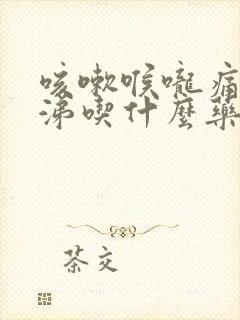 咳嗽喉嚨痛
涕喫什麼藥
茶文